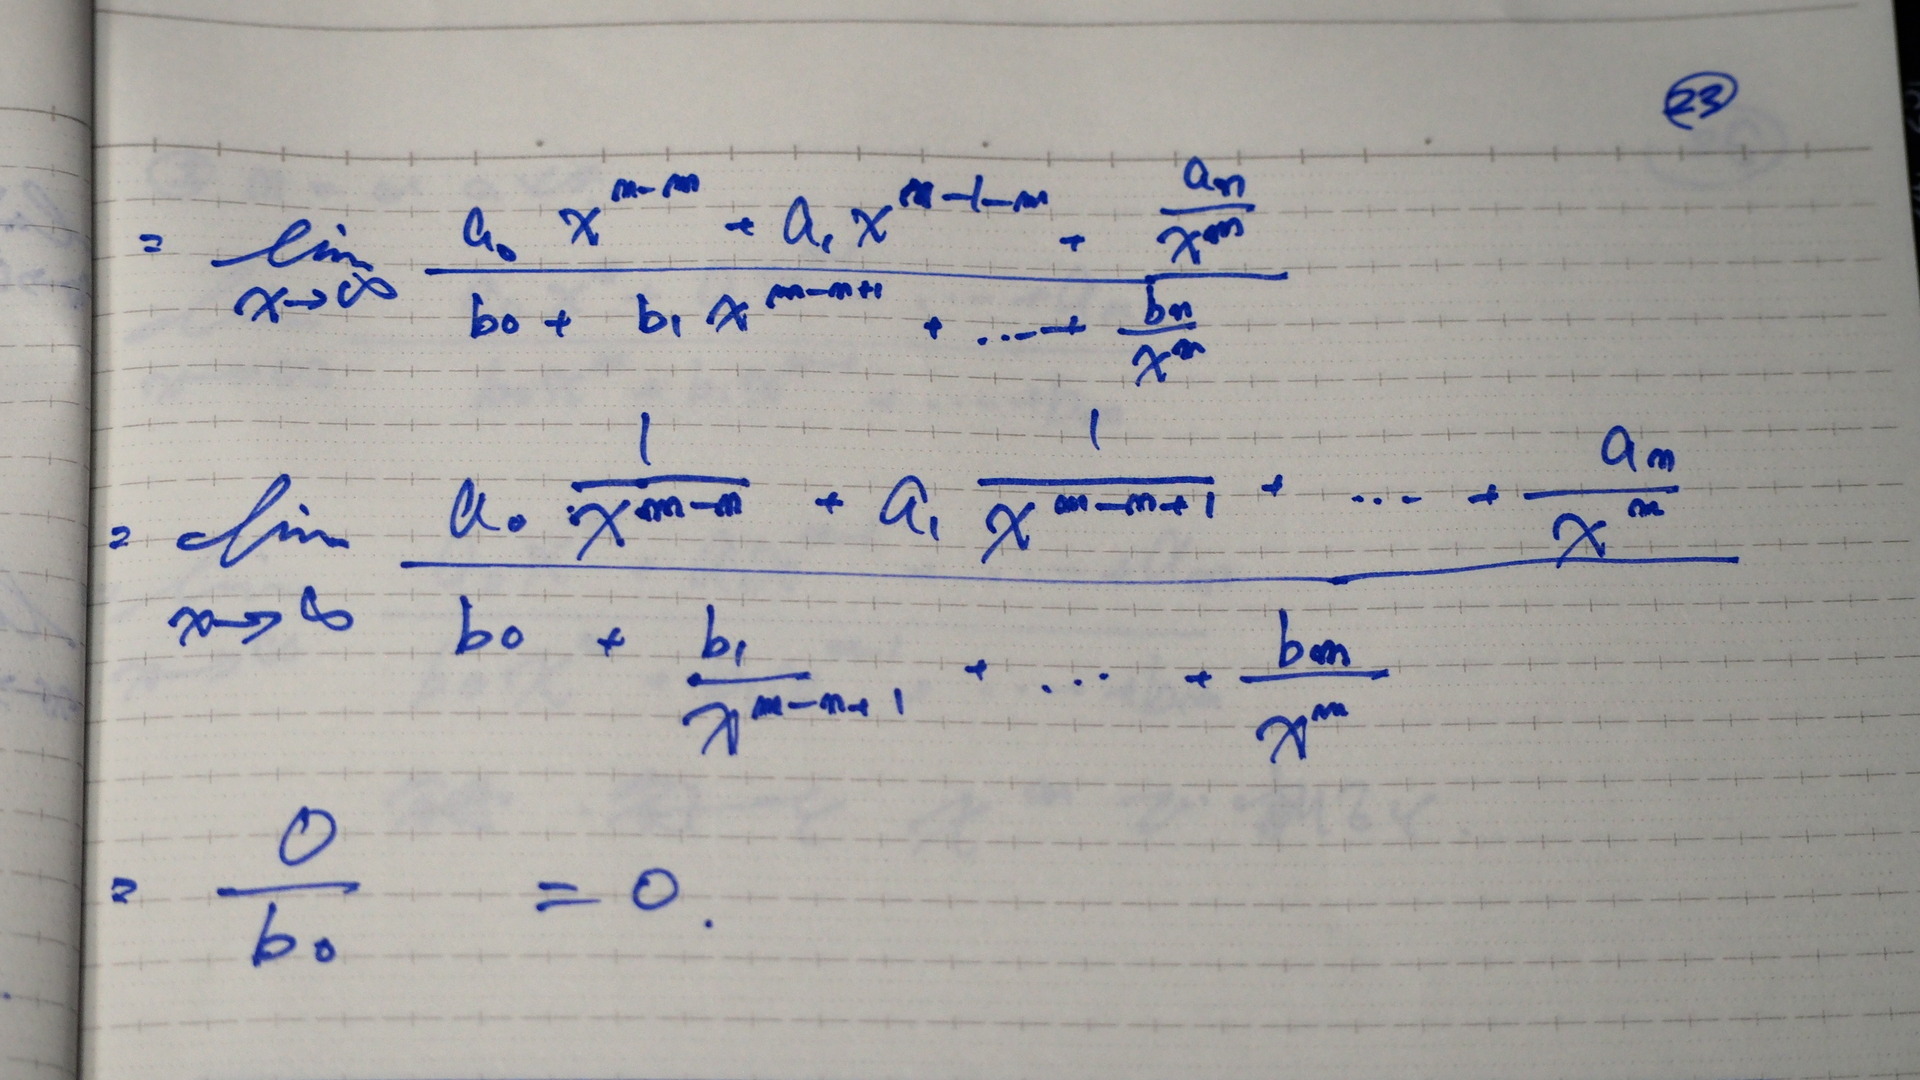 23
= lim x→∞ (a₀ x^{n-m} + a₁ x^{n-1-m} + a_n/x^m) / (b₀ + b₁ x^{m-n+1} + ... + b_n/x^n)
= lim x→∞ (a₀ 1/x^{m-n} + a₁ 1/x^{m-n+1} + ... + a_n/x^m) / (b₀ + b₁/x^{m-n+1} + ... + b_m/x^m)
= 0/b₀ = 0.